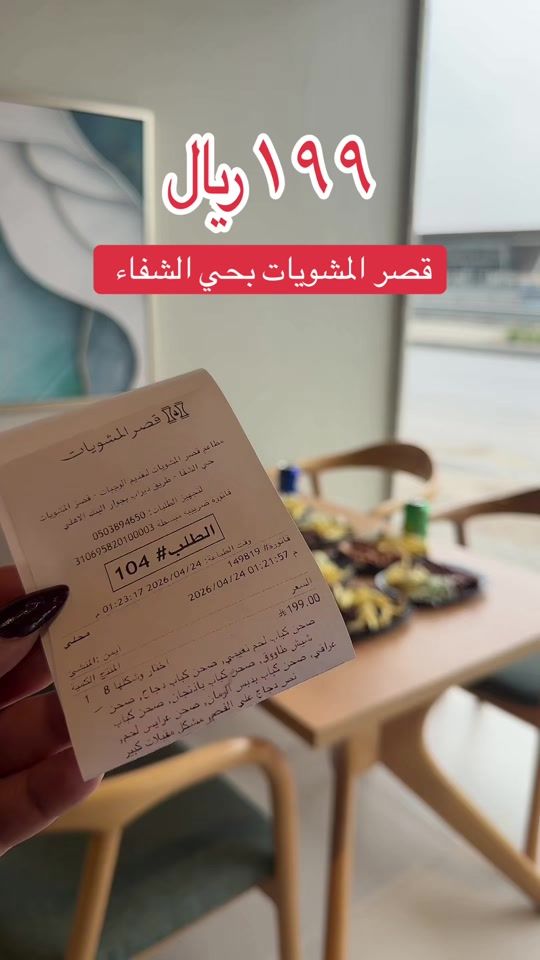 ١٩٩ ريال
قصر المشويات بحي الشفاء
قصر المشويات
مطاعم قصر المشويات لتقديم الوجبات - قصر المشويات
حي الشفا - طريق ديراب بجوار البنك الاهلي
لتجهيز الطلبات: 0503894650
فاتورة ضريبية مبسطة 310695820100003
الطلب# 104
وقت الطباعة: 2026/04/24 01:23:17 م
فاتورة# 149819
2026/04/24 01:21:57 م
محلي
ايمن :المنشئ
المنتج الكمية السعر
1 اختار وشكلها 8 199.00
صحن كباب لحم نعيمي، صحن كباب دجاج، صحن
شيش طاووق، صحن كباب باذنجان، صحن كباب
عراقي، صحن كباب بدبس الرمان، صحن عرايس لحم،
نص دجاج على الفحم، مشكل مقبلات كبير